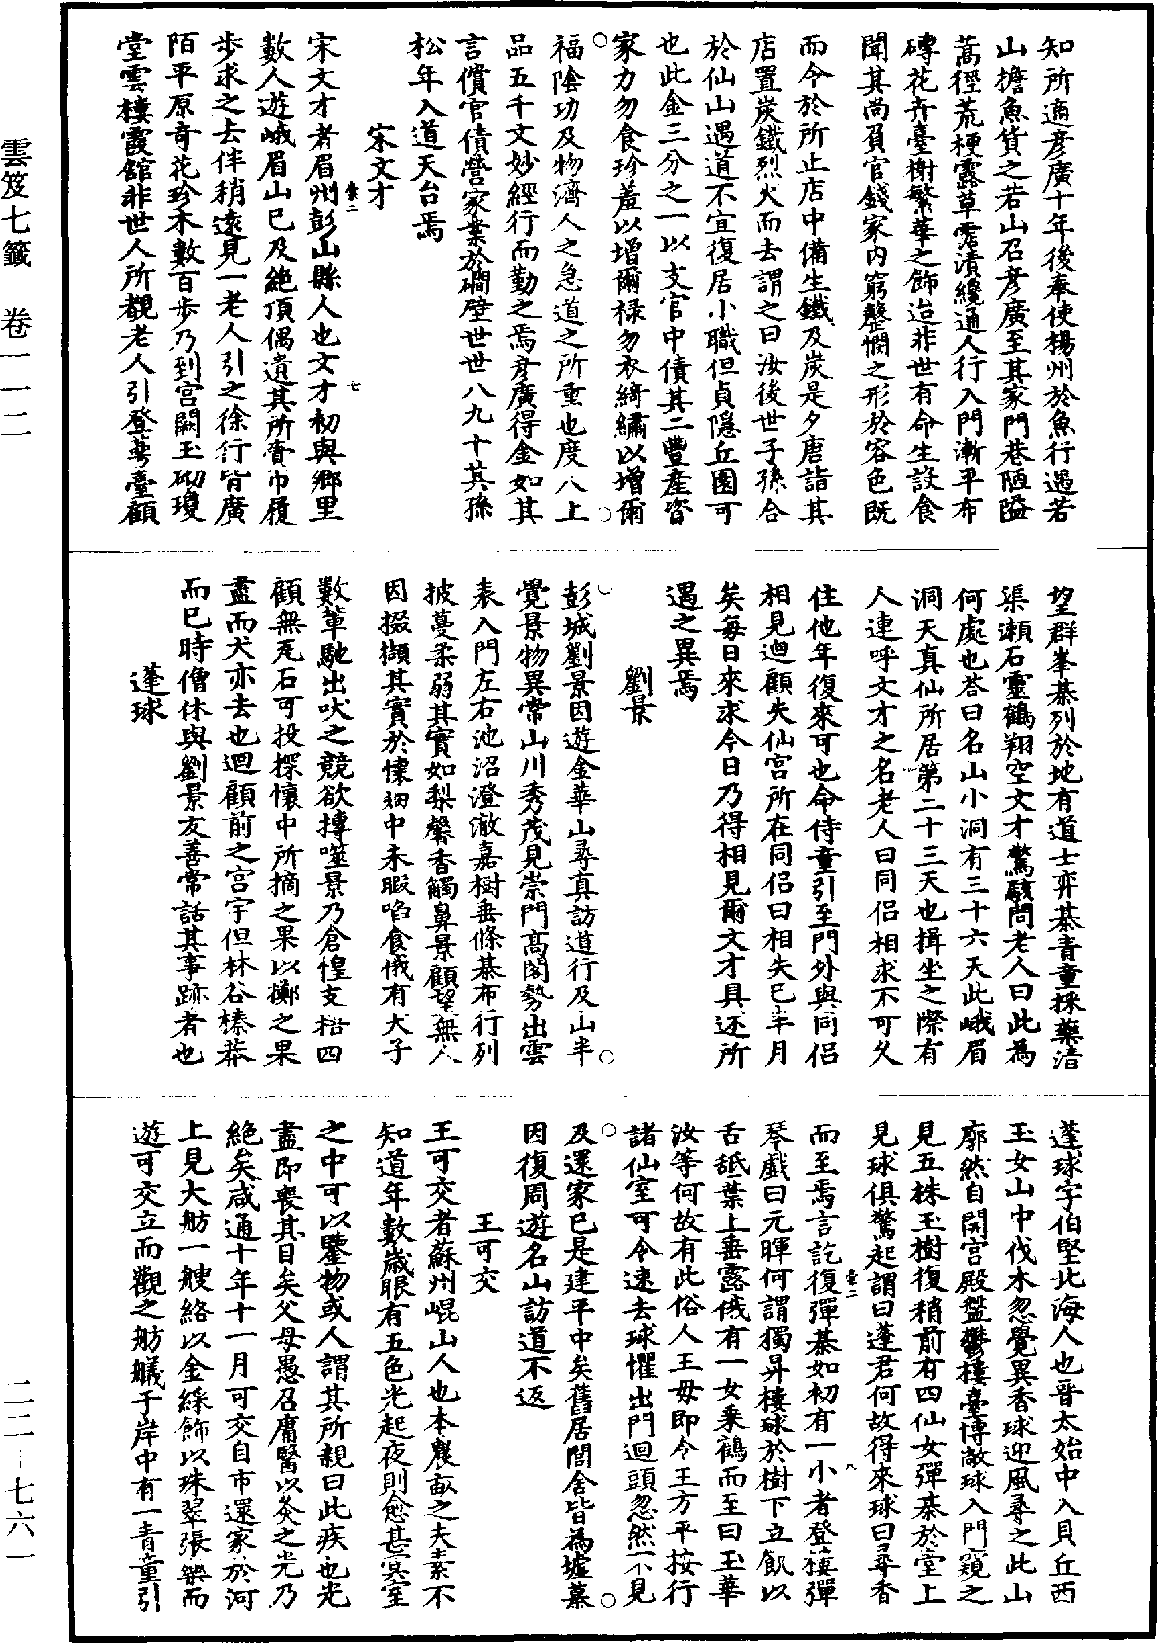 知所適彥廣十年後奉使楊州於魚行遇若
山擔魚貨之若山召彥廣至其家門巷陋隘
蒿徑荒梗露草霑漬纔通人行入門漸平布
磚花卉臺榭繁華之飾迨非世有命生設食
聞其尚負官錢家內窮整憫之形於容色既
而今於所止店中備生鐵及炭是夕唐詣其
店置炭鐵烈火而去謂之曰汝後世子孫合
於仙山遇道不宜復居小職但貞隱丘園可
也此金三分之一以支官中債其二豐產資
家力勿食珍羞以增爾祿勿衣綺繡以增爾
福陰功及物濟人之急道之所重也度八上
品五千文妙經行而勤之焉彥廣得金如其
言償官債營家業於磵壁世世八九十其孫
松年入道天台焉
宋文才
宋文才者眉州彭山縣人也文才初與鄉里
數人遊峨眉山巳及絕頂偶遺其所賫巾履
步求之去伴稍遠見一老人引之徐行皆廣
陌平原奇花珍木數百步乃到宮闕玉砌瓊
堂雲樓霞館非世人所覩老人引登萼臺顧
望群峯棊列於地有道士弈棊青童採藥清
渠瀨石靈鶴翔空文才驚駭問老人曰此為
何處也荅曰名山小洞有三十六天此峨眉
洞天真仙所居第二十三天也揖坐之際有
人連呼文才之名老人曰同侶相求不可久
住他年復來可也命侍童引至門外與同侶
相見迴顧失仙宮所在同侶曰相失巳半月
矣每日來求今日乃得相見爾文才具述所
遇之異焉
劉景
彭城劉景因遊金華山尋真訪道行及山半
覺景物異常山川秀茂見崇門高閣勢出雲
表入門左右池沼澄澈嘉樹垂條棊布行列
披蔓柔弱其實如梨馨香觸鼻景顧望無人
因掇擷其實於懷袖中未暇啗食俄有犬子
數輩馳出吠之競欲摶噬景乃倉惶支捂四
顧無瓦石可投探懷中所摘之果以擲之果
盡而犬亦去也迴顧前之宮宇但林谷榛莽
而已時僧休與劉景友善常話其事跡者也
蓬球
蓬球字伯堅北海人也晉太始中入貝丘西
玉女山中伐木忽覺異香球迎風尋之此山
廓然自開宮殿盤鬱樓臺博敞球入門窺之
見五株玉樹復稍前有四仙女彈棊於堂上
見球俱驚起謂曰蓬君何故得來球曰尋香
而至焉言訖復彈棊如初有一小者登樓彈
琴戲曰元暉何謂獨昇樓球於樹下立飢以
舌舐葉上垂露俄有一女乘鶴而至曰玉華
汝等何故有此俗人王毋即令王方平按行
諸仙室可令速去球懼出門迴頭忽然不見
及還家已是建平中矣舊居閭舍皆為墟墓
因復周遊名山訪道不返
王可交
王可交者蘇州崐山人也本農畝之夫素不
知道年數歲眼有五色光起夜則愈甚冥室
之中可以鑒物或人謂其所親曰此疾也光
盡即喪其目矣父母愚召庸醫以灸之光乃
絕矣咸通十年十一月可交自市還家於河
上見大舫一艘絡以金綵飾以珠翠張樂而
遊可交立而觀之舫艤于岸中有一青童引
雲笈七籤　卷一一二
二二－七六一